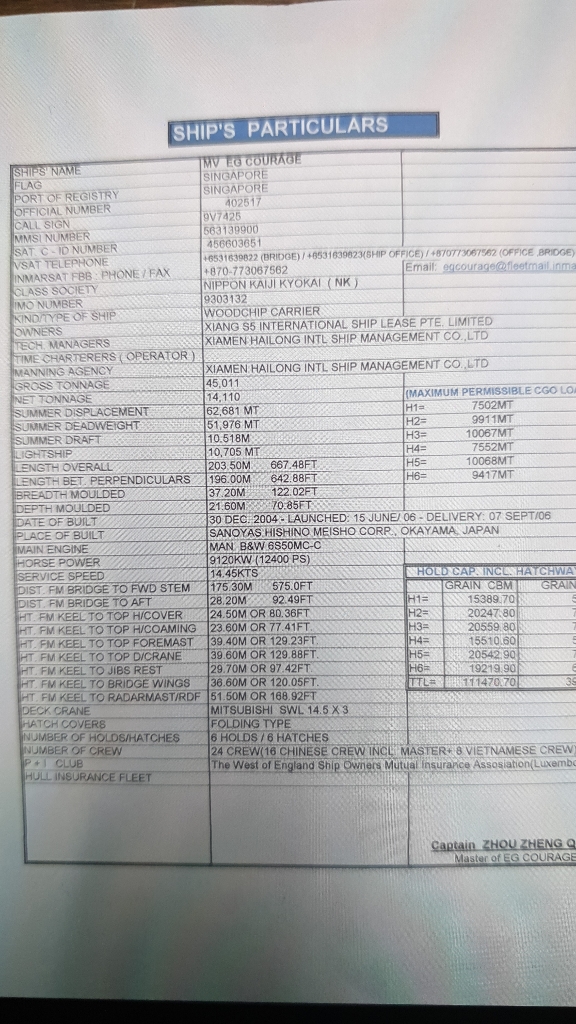 SHIP'S PARTICULARS
SHIPS' NAME MV EG COURAGE
FLAG SINGAPORE
PORT OF REGISTRY SINGAPORE
OFFICIAL NUMBER 402517
CALL SIGN 9V7425
MMSI NUMBER 563139900
SAT C - ID NUMBER 456603651
VSAT TELEPHONE +6531639822 (BRIDGE) / +6531639823(SHIP OFFICE) / +870773067562 (OFFICE BRIDGE)
INMARSAT FBB : PHONE / FAX +870-773067562 Email: egcourage@fleetmail.inma
CLASS SOCIETY NIPPON KAIJI KYOKAI ( NK )
IMO NUMBER 9303132
KIND/TYPE OF SHIP WOODCHIP CARRIER
OWNERS XIANG S5 INTERNATIONAL SHIP LEASE PTE. LIMITED
TECH. MANAGERS XIAMEN HAILONG INTL SHIP MANAGEMENT CO.,LTD
TIME CHARTERERS ( OPERATOR )
MANNING AGENCY XIAMEN HAILONG INTL SHIP MANAGEMENT CO.,LTD
GROSS TONNAGE 45,011
NET TONNAGE 14,110 (MAXIMUM PERMISSIBLE CGO LO
SUMMER DISPLACEMENT 62,681 MT H1= 7502MT
SUMMER DEADWEIGHT 51,976 MT H2= 9911MT
SUMMER DRAFT 10.518M H3= 10067MT
LIGHTSHIP 10,705 MT H4= 7552MT
LENGTH OVERALL 203.50M 667.48FT H5= 10068MT
LENGTH BET. PERPENDICULARS 196.00M 642.88FT H6= 9417MT
BREADTH MOULDED 37.20M 122.02FT
DEPTH MOULDED 21.60M 70.85FT
DATE OF BUILT 30 DEC. 2004 - LAUNCHED: 15 JUNE/ 06 - DELIVERY: 07 SEPT/06
PLACE OF BUILT SANOYAS HISHINO MEISHO CORP., OKAYAMA, JAPAN
MAIN ENGINE MAN B&W 6S50MC-C
HORSE POWER 9120KW (12400 PS)
SERVICE SPEED 14.45KTS HOLD CAP. INCL. HATCHWA
DIST. FM BRIDGE TO FWD STEM 175.30M 575.0FT GRAIN CBM GRAIN
DIST. FM BRIDGE TO AFT 28.20M 92.49FT H1= 15389.70
HT. FM KEEL TO TOP H/COVER 24.50M OR 80.36FT H2= 20247.80
HT. FM KEEL TO TOP H/COAMING 23.60M OR 77.41FT. H3= 20559.80
HT. FM KEEL TO TOP FOREMAST 39.40M OR 129.23FT H4= 15510.60
HT. FM KEEL TO TOP D/CRANE 39.60M OR 129.88FT. H5= 20542.90
HT. FM KEEL TO JIBS REST 29.70M OR 97.42FT. H6= 19219.90
HT. FM KEEL TO BRIDGE WINGS 36.60M OR 120.05FT. TTL= 111470.70
HT. FM KEEL TO RADARMAST/RDF 51.50M OR 168.92FT
DECK CRANE MITSUBISHI SWL 14.5 X 3
HATCH COVERS FOLDING TYPE
NUMBER OF HOLDS/HATCHES 6 HOLDS / 6 HATCHES
NUMBER OF CREW 24 CREW(16 CHINESE CREW INCL. MASTER+ 8 VIETNAMESE CREW)
P + I CLUB The West of England Ship Owners Mutual Insurance Assosiation(Luxembo
HULL INSURANCE FLEET
Captain ZHOU ZHENG Q
Master of EG COURAGE